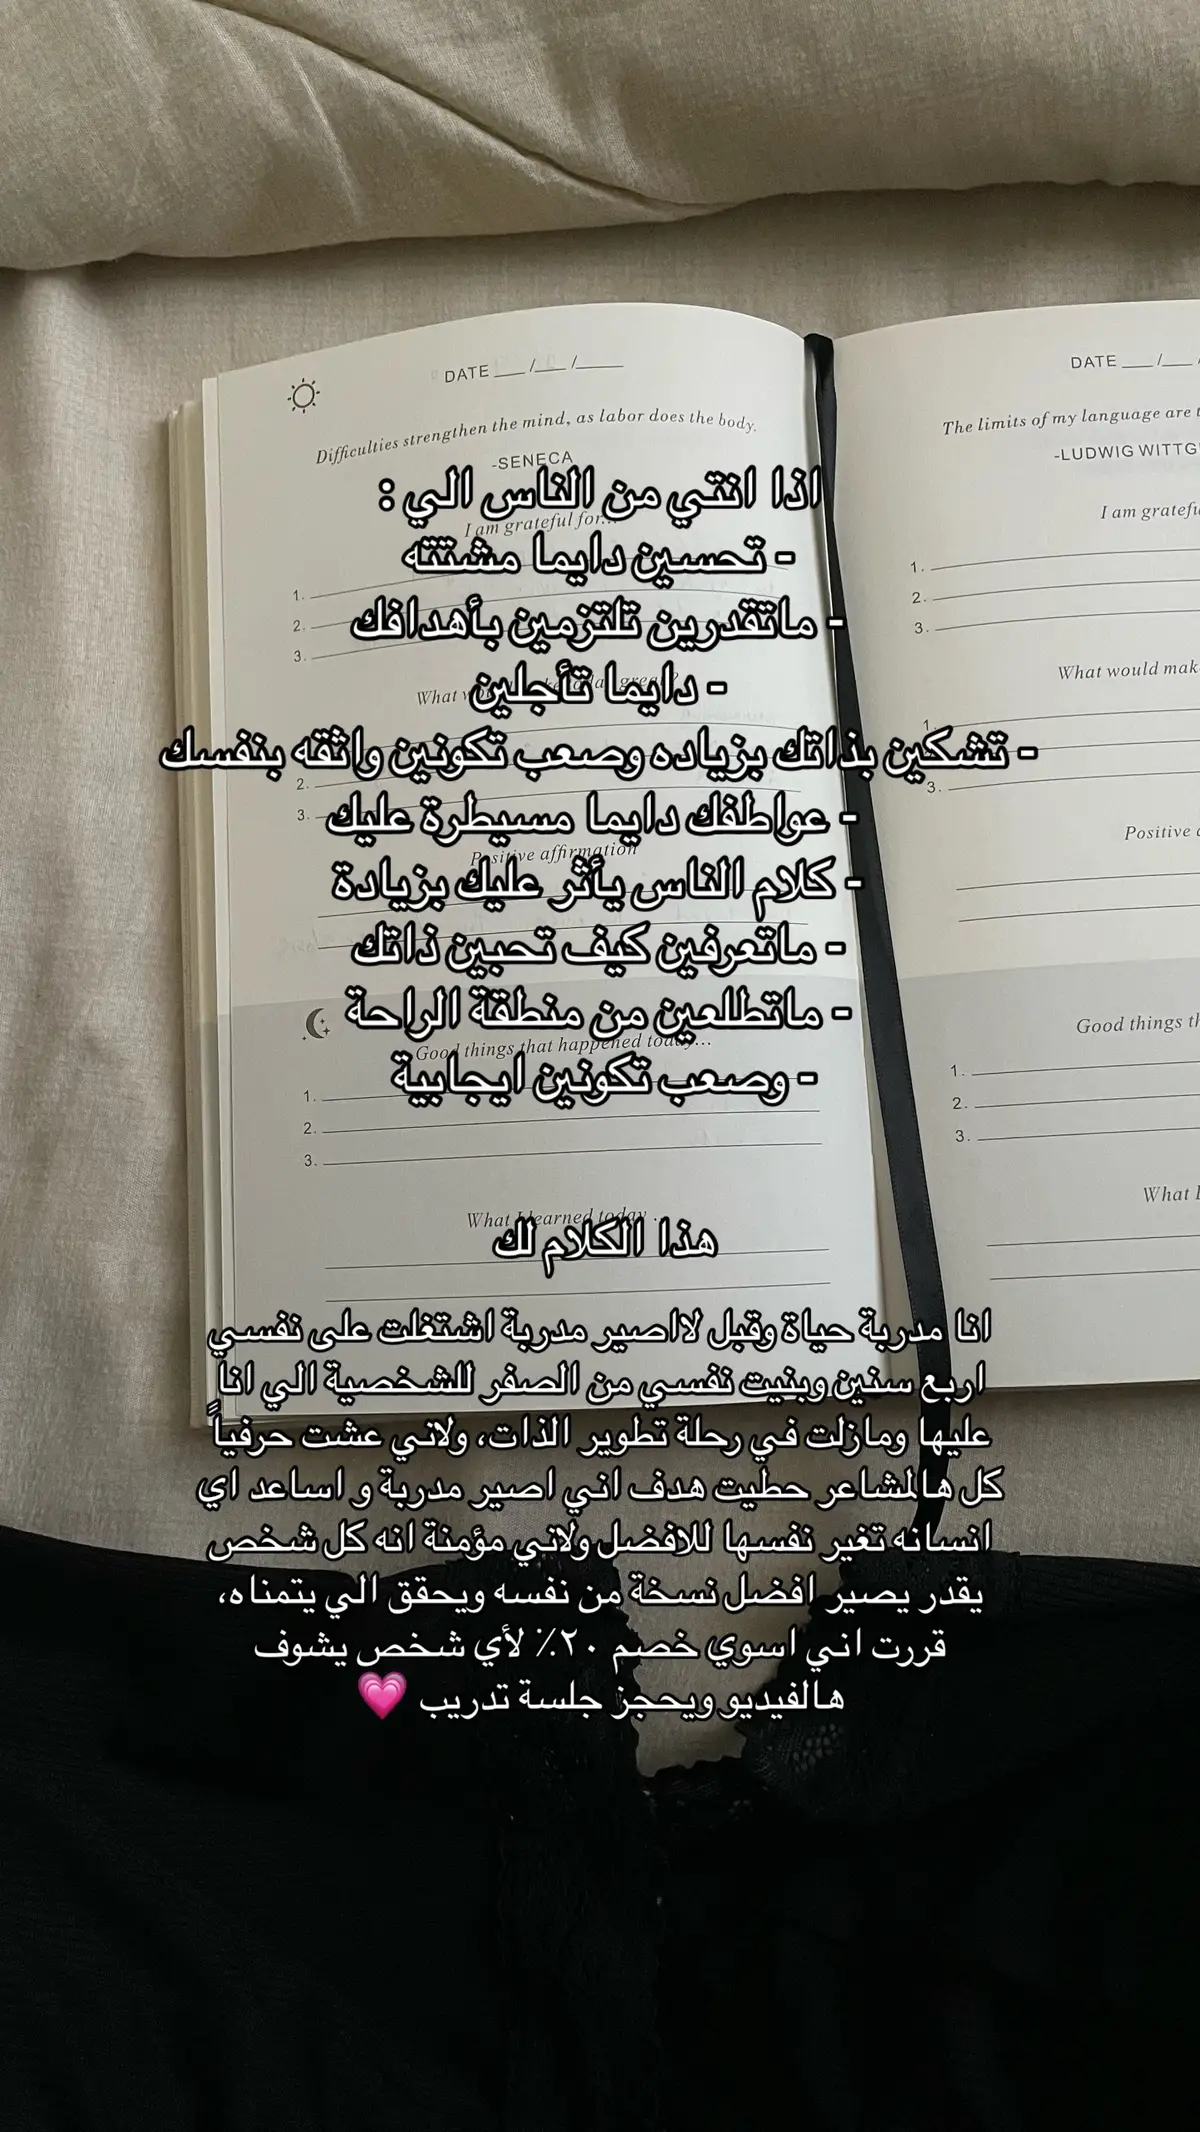 DATE __ /__ /____
Difficulties strengthen the mind, as labor does the body.
-SENECA
I am grateful for...
1.
2.
3.
What
great?
2.
3.
Positive affirmation
Good things that happened today...
1.
2.
3.
What I learned today ...
DATE __ /__
The limits of my language are
-LUDWIG
I am
1.
2.
3.
What would
1.
3.
Positive
Good things
1.
2.
3.
What
اذا انتي من الناس الي :
- تحسين دايما مشتته
- ماتقدرين تلتزمين بأهدافك
- دايما تأجلين
- تشكين بذاتك بزياده وصعب تكونين واثقه بنفسك
- عواطفك دايما مسيطرة عليك
- كلام الناس يأثر عليك بزيادة
- ماتعرفين كيف تحبين ذاتك
- ماتطلعين من منطقة الراحة
- وصعب تكونين ايجابية
هذا الكلام لك
انا مدربة حياة وقبل لااصير مدربة اشتغلت على نفسي
اربع سنين وبنيت نفسي من الصفر للشخصية الي انا
عليها ومازلت في رحلة تطوير الذات، ولاني عشت حرفياً
كل هالمشاعر حطيت هدف اني اصير مدربة و اساعد اي
انسانه تغير نفسها للافضل ولاني مؤمنة انه كل شخص
يقدر يصير افضل نسخة من نفسه ويحقق الي يتمناه،
قررت اني اسوي خصم ٢٠٪ لأي شخص يشوف
هالفيديو ويحجز جلسة تدريب 💗